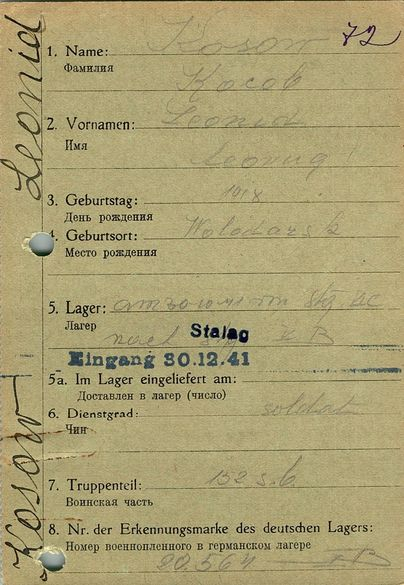 72
Kosow Leonid
1. Name: Kosow
Фамилия Косов
2. Vornamen: Leonid
Имя Леонид
3. Geburtstag: 1918
День рождения
4. Geburtsort:
Место рождения
5. Lager:
Лагер nach
Stalag
Eingang 30.12.41
5a. Im Lager eingeliefert am:
Доставлен в лагер (число)
6. Dienstgrad: soldat
Чин
7. Truppenteil: 132 s.b.
Воинская часть
8. Nr. der Erkennungsmarke des deutschen Lagers:
Номер военнопленного в германском лагере
20.564